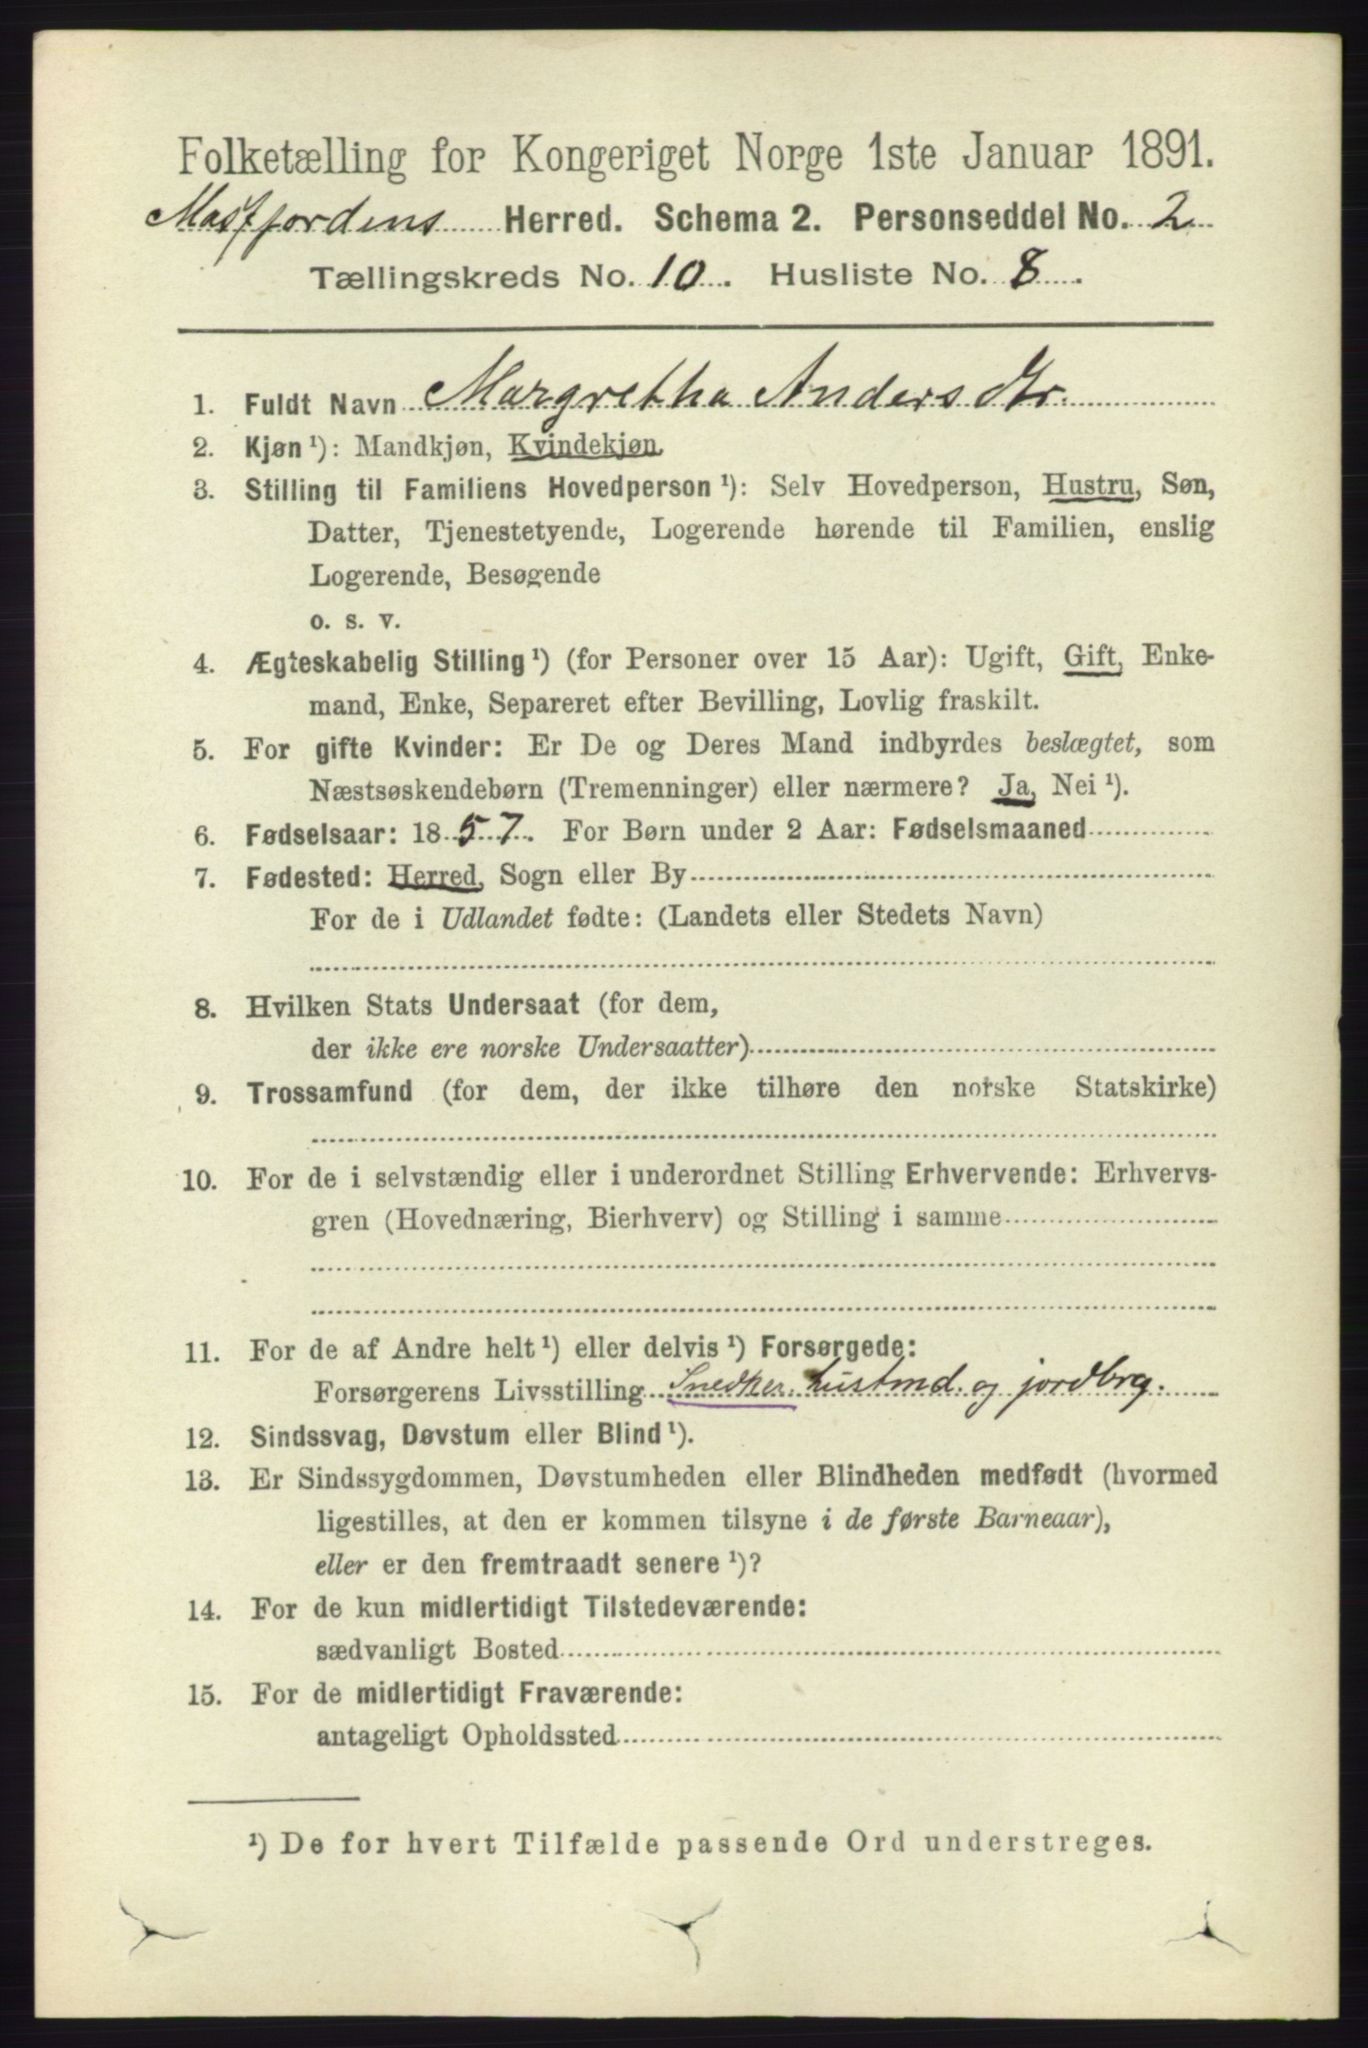 Folketælling for Kongeriget Norge 1ste Januar 1891.
Masfjordens Herred. Schema 2. Personseddel No. 2
Tællingskreds No. 10. Husliste No. 8.
1. Fuldt Navn Margretha Andersdtr.
2. Kjøn ¹): Mandkjøn, Kvindekjøn
3. Stilling til Familiens Hovedperson ¹): Selv Hovedperson, Hustru, Søn,
Datter, Tjenestetyende, Logerende hørende til Familien, enslig
Logerende, Besøgende
o. s. v.
4. Ægteskabelig Stilling ¹) (for Personer over 15 Aar): Ugift, Gift, Enke-
mand, Enke, Separeret efter Bevilling, Lovlig fraskilt.
5. For gifte Kvinder: Er De og Deres Mand indbyrdes beslægtet, som
Næstsøskendebørn (Tremenninger) eller nærmere? Ja, Nei ¹).
6. Fødselsaar: 1857. For Børn under 2 Aar: Fødselsmaaned
7. Fødested: Herred, Sogn eller By
For de i Udlandet fødte: (Landets eller Stedets Navn)
8. Hvilken Stats Undersaat (for dem,
der ikke ere norske Undersaatter)
9. Trossamfund (for dem, der ikke tilhøre den norske Statskirke)
10. For de i selvstændig eller i underordnet Stilling Erhvervende: Erhvervs-
gren (Hovednæring, Bierhverv) og Stilling i samme
11. For de af Andre helt ¹) eller delvis ¹) Forsørgede:
Forsørgerens Livsstilling Snedker, Hustmd. og jordbrg.
12. Sindssvag, Døvstum eller Blind ¹).
13. Er Sindssygdommen, Døvstumheden eller Blindheden medfødt (hvormed
ligestilles, at den er kommen tilsyne i de første Barneaar),
eller er den fremtraadt senere ¹)?
14. For de kun midlertidigt Tilstedeværende:
sædvanligt Bosted
15. For de midlertidigt Fraværende:
antageligt Opholdssted
¹) De for hvert Tilfælde passende Ord understreges.